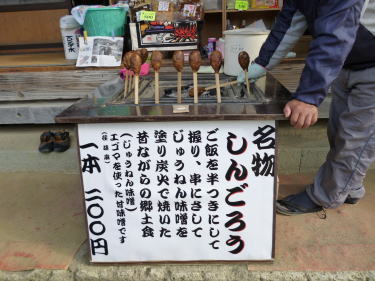 名物
しんごろう
ご飯を半つぶしにして
握り、串にさして
じゅうねん味噌を
塗り炭火で焼いた
昔ながらの郷土食
(じゅうねん味噌)
エゴマを使った甘味噌です
一本 二〇〇円